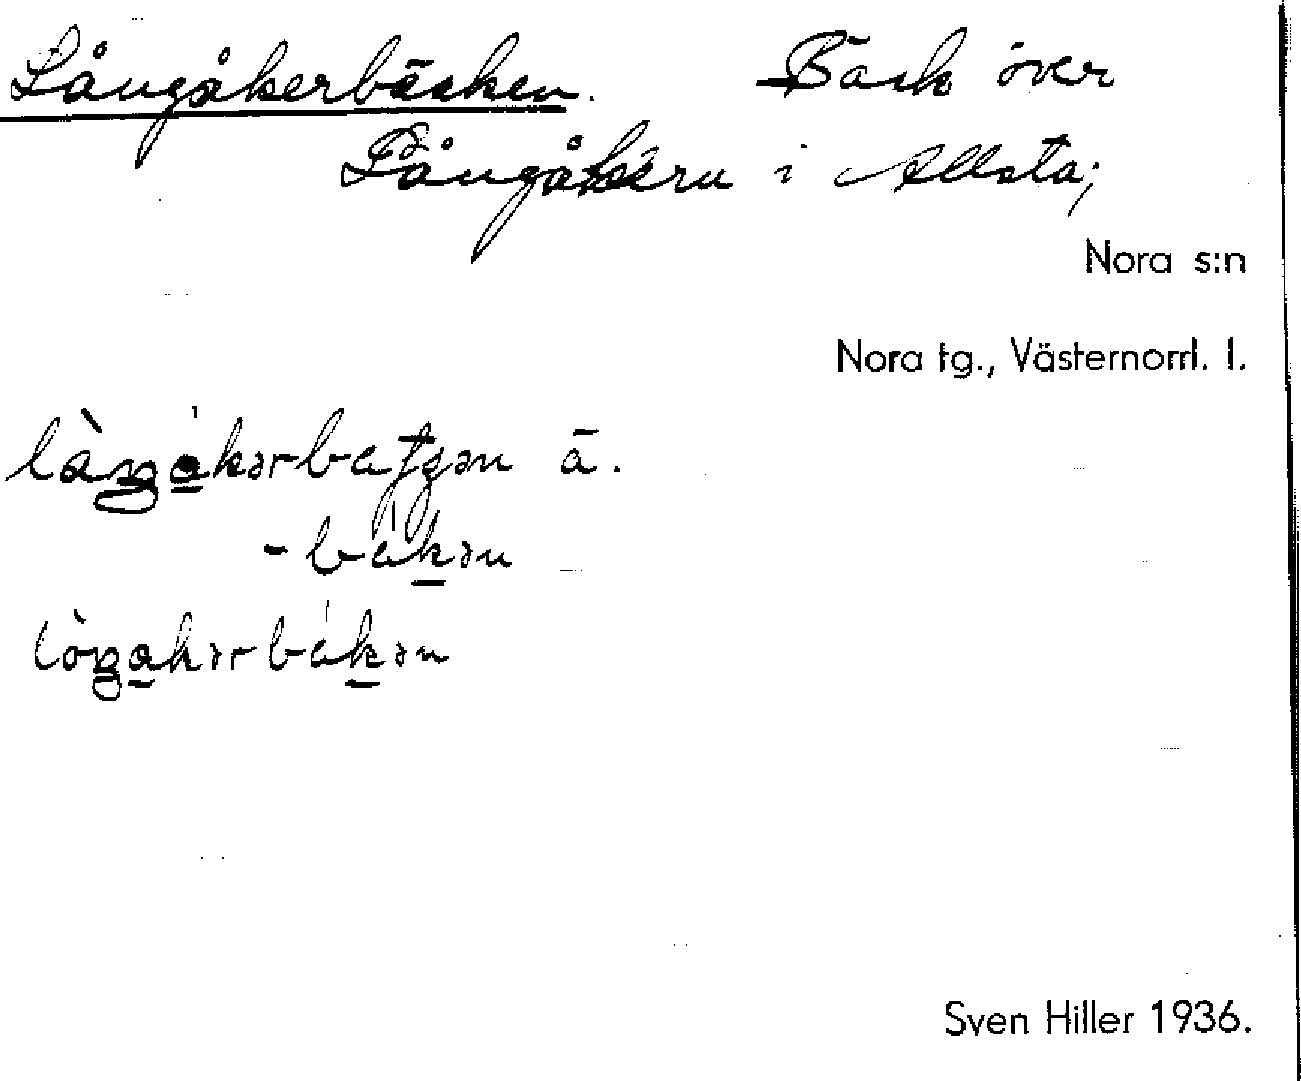 Långåkerbäcken. Bäck över
Långåkern i Allsta;
Nora s:n
Nora tg., Västernorrl. l.
-bàkən
Sven Hiller 1936.